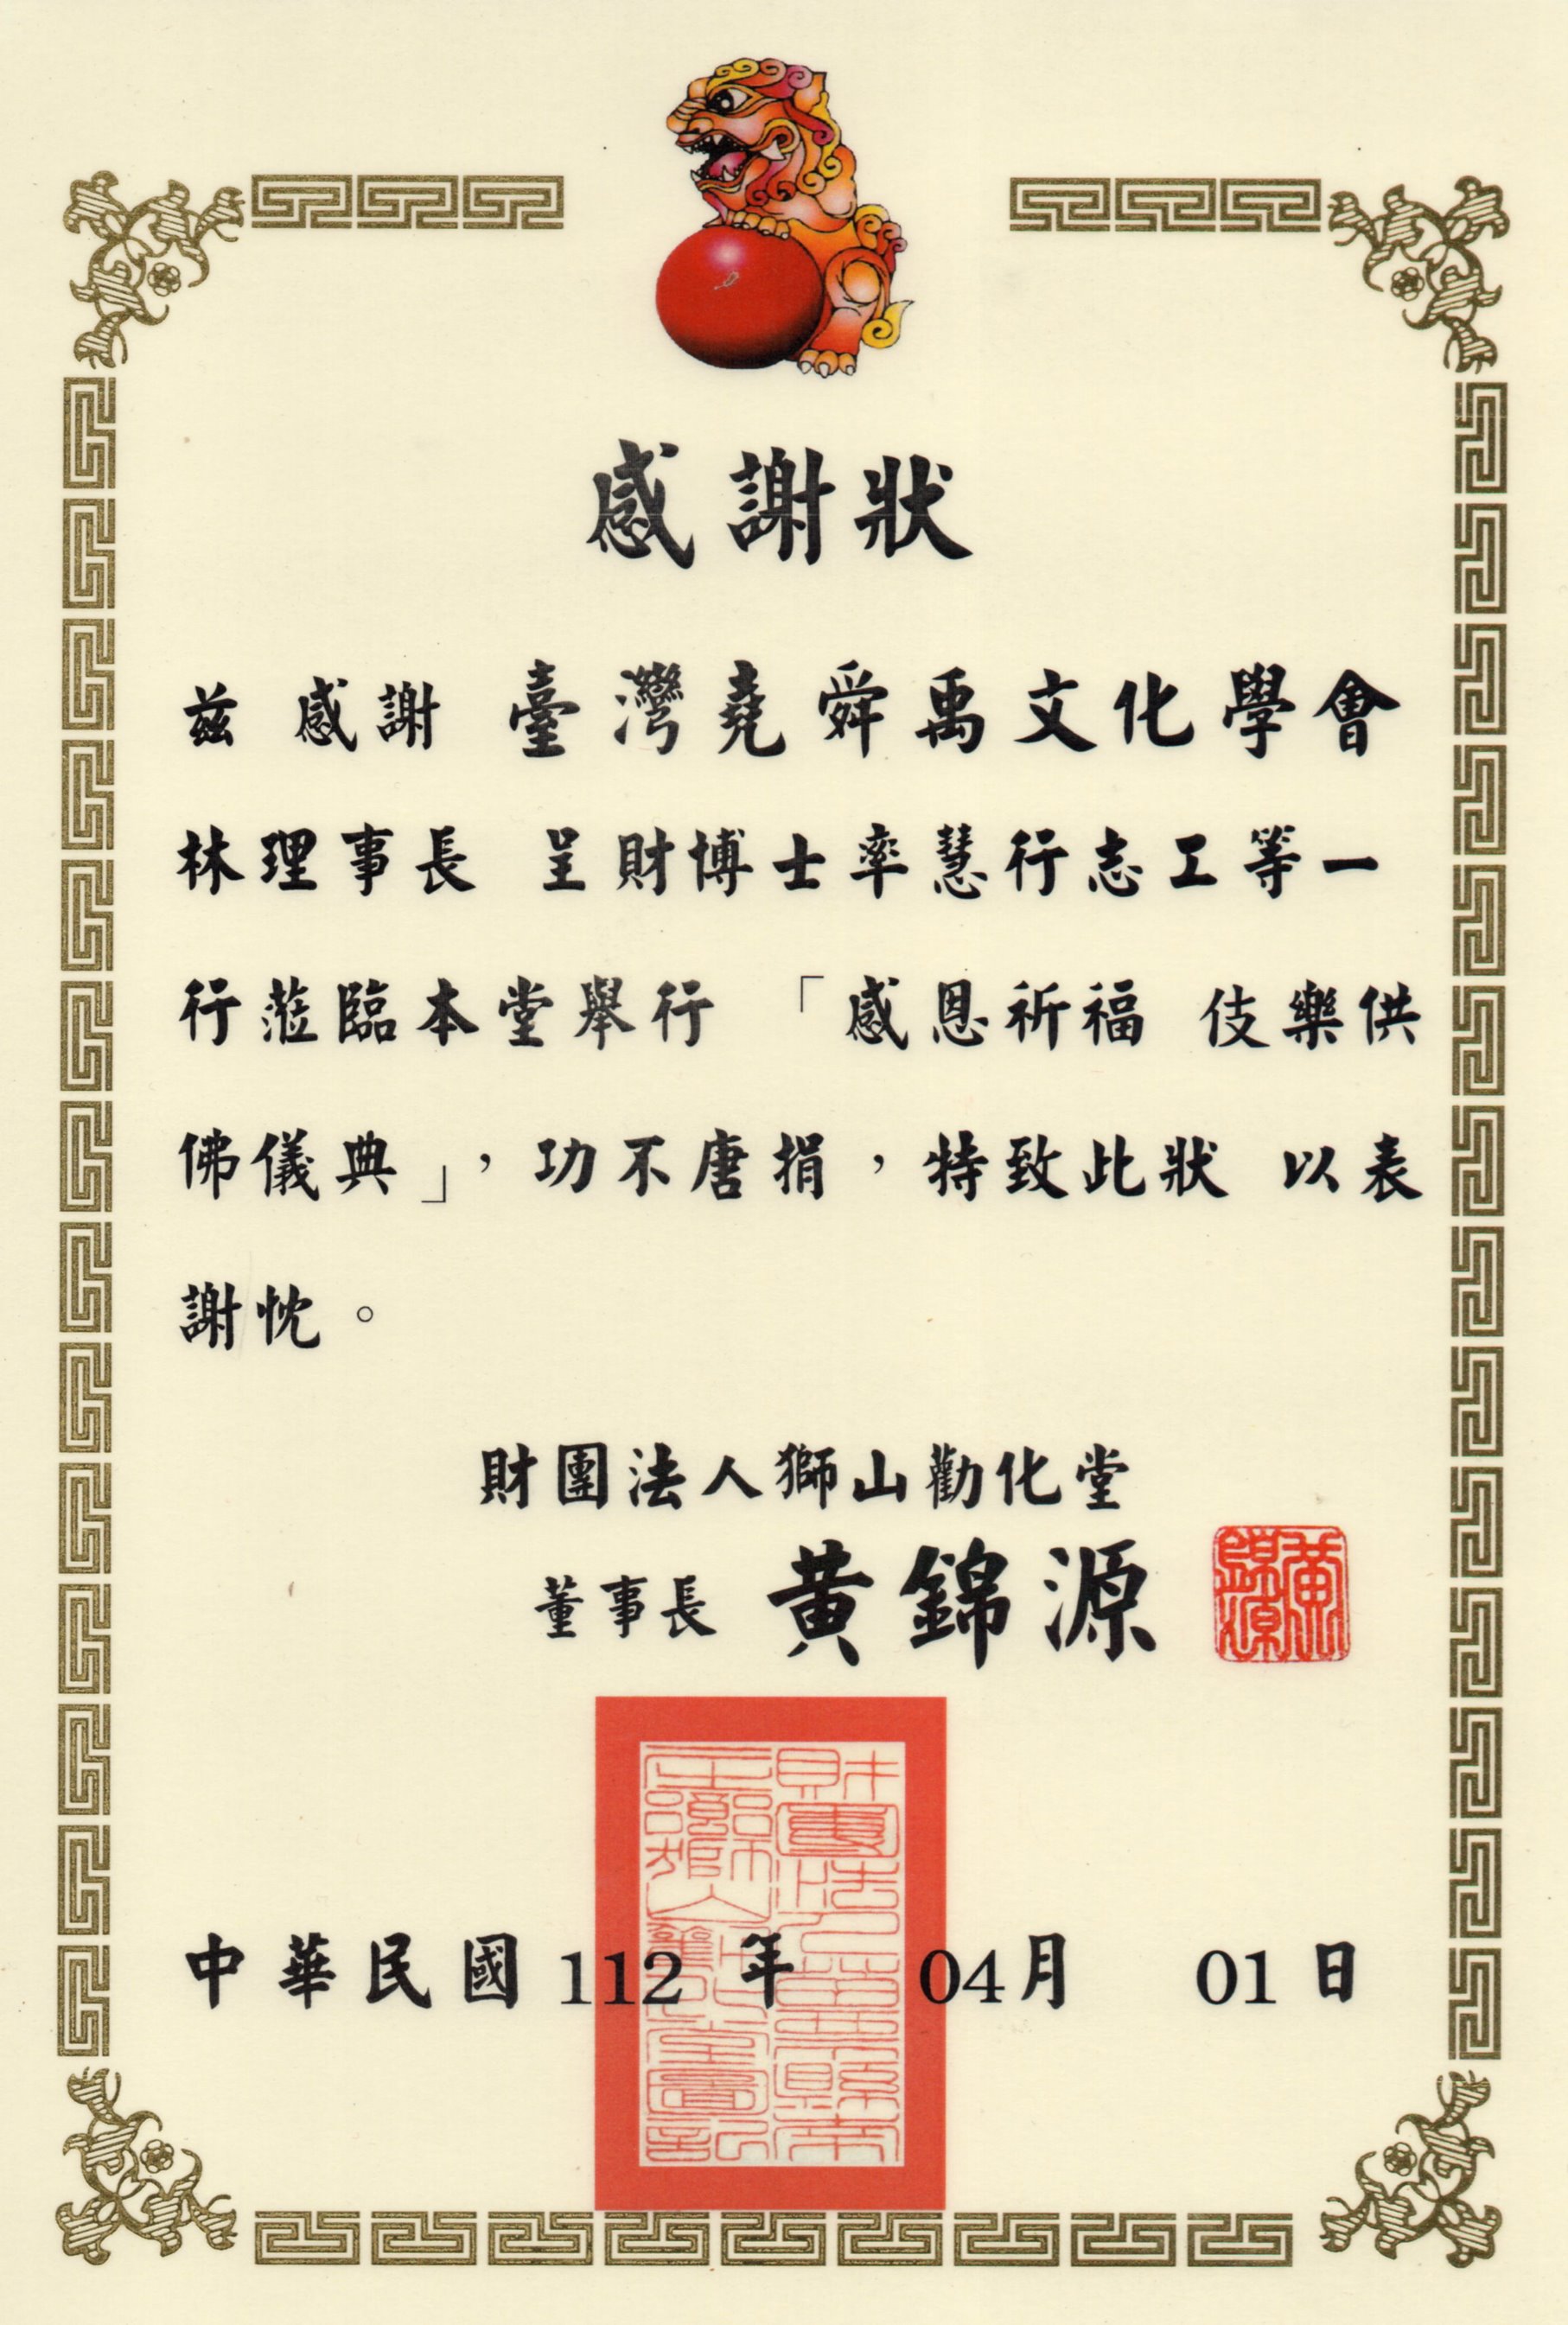 感謝狀
茲 感謝 臺灣堯舜禹文化學會
林理事長 呈財博士率慧行志工等一
行蒞臨本堂舉行 「感恩祈福 伎樂供
佛儀典」，功不唐捐，特致此狀 以表
謝忱。
財團法人獅山勸化堂
董事長 黃錦源
中華民國 112 年 04月 01 日